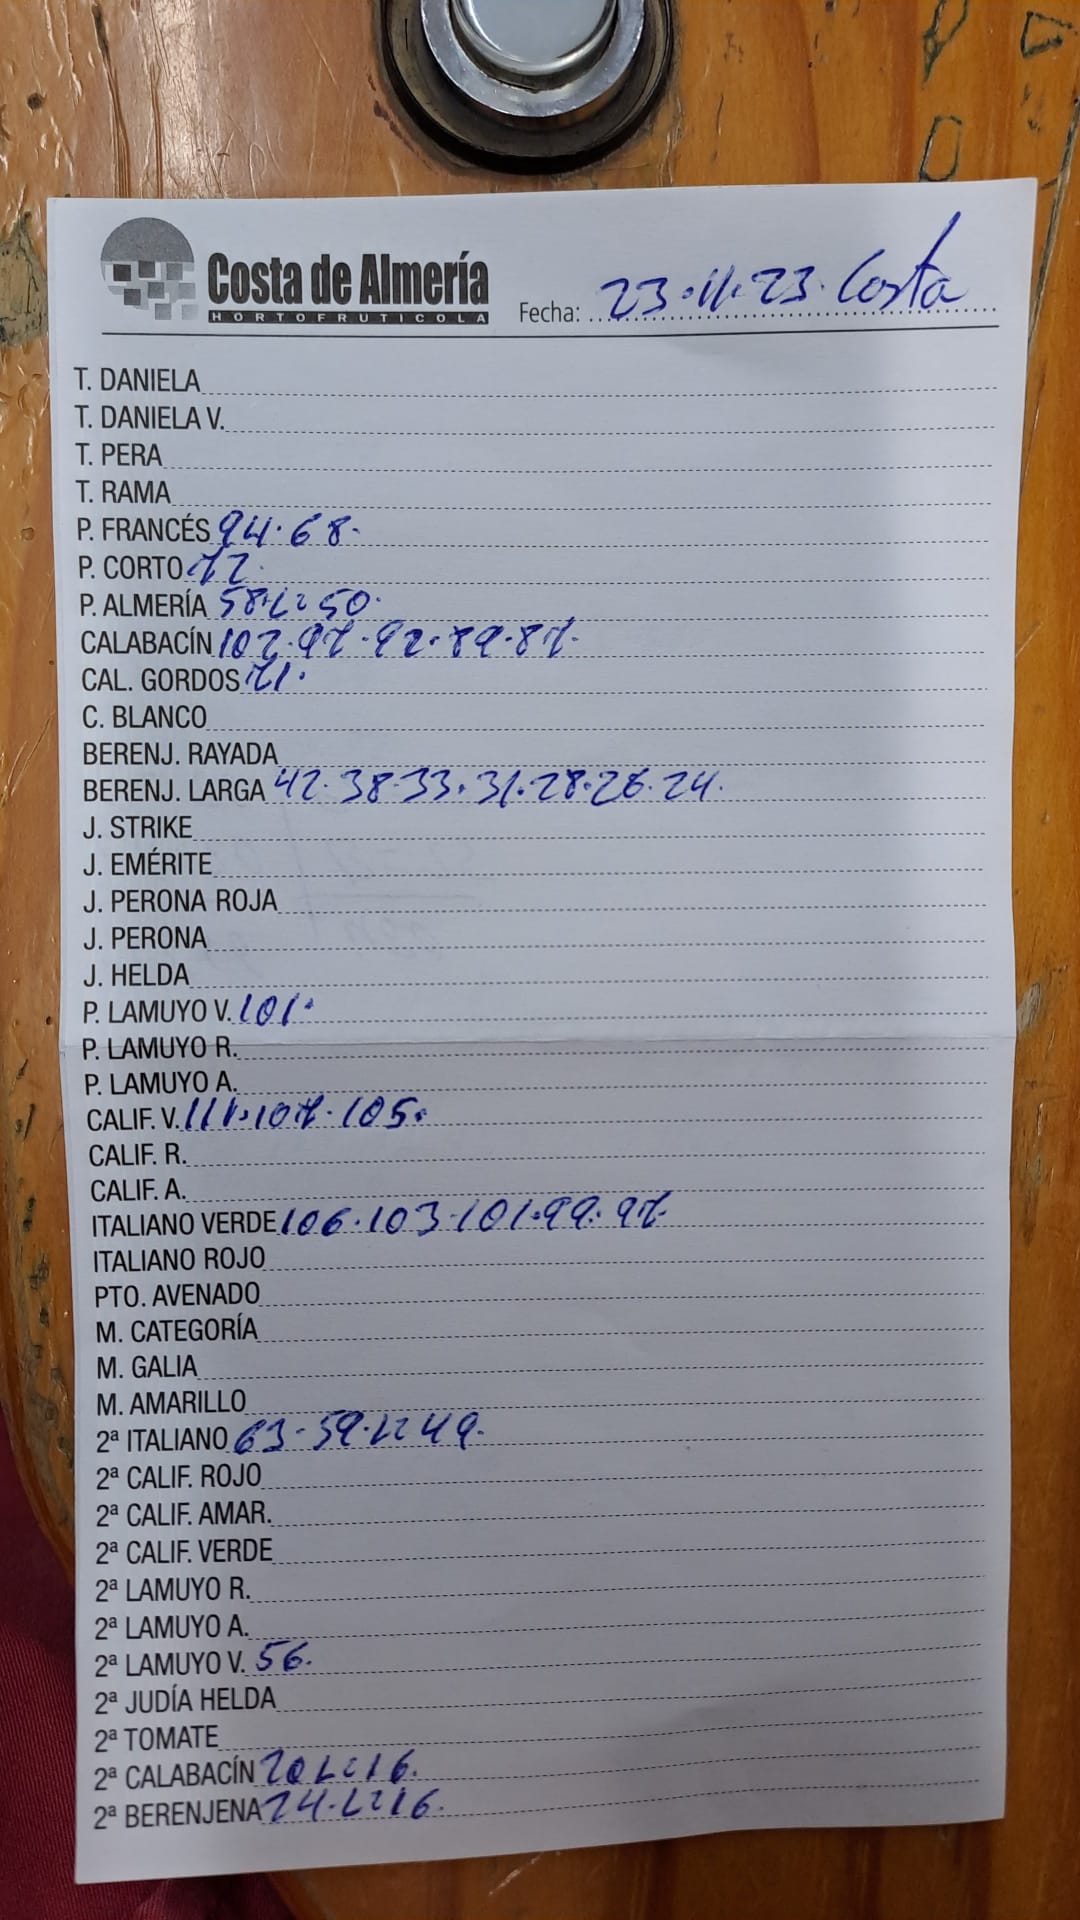 Costa de Almería
HORTOFRUTICOLA
Fecha: 23.11.23. Costa
T. DANIELA
T. DANIELA V.
T. PERA
T. RAMA
P. FRANCÉS 94.68.
P. CORTO 72.
P. ALMERÍA 58. 50.
CALABACÍN 102.97.92.89.87.
CAL. GORDOS 71.
C. BLANCO
BERENJ. RAYADA
BERENJ. LARGA 42.38.33.31.28.26.24.
J. STRIKE
J. EMÉRITE
J. PERONA ROJA
J. PERONA
J. HELDA
P. LAMUYO V. 101.
P. LAMUYO R.
P. LAMUYO A.
CALIF. V. 111.107.105.
CALIF. R.
CALIF. A.
ITALIANO VERDE 106.103.101.99.97.
ITALIANO ROJO
PTO. AVENADO
M. CATEGORÍA
M. GALIA
M. AMARILLO
2ª ITALIANO 63.59. 49.
2ª CALIF. ROJO
2ª CALIF. AMAR.
2ª CALIF. VERDE
2ª LAMUYO R.
2ª LAMUYO A.
2ª LAMUYO V. 56.
2ª JUDÍA HELDA
2ª TOMATE
2ª CALABACÍN 20 16.
2ª BERENJENA 24. 16.